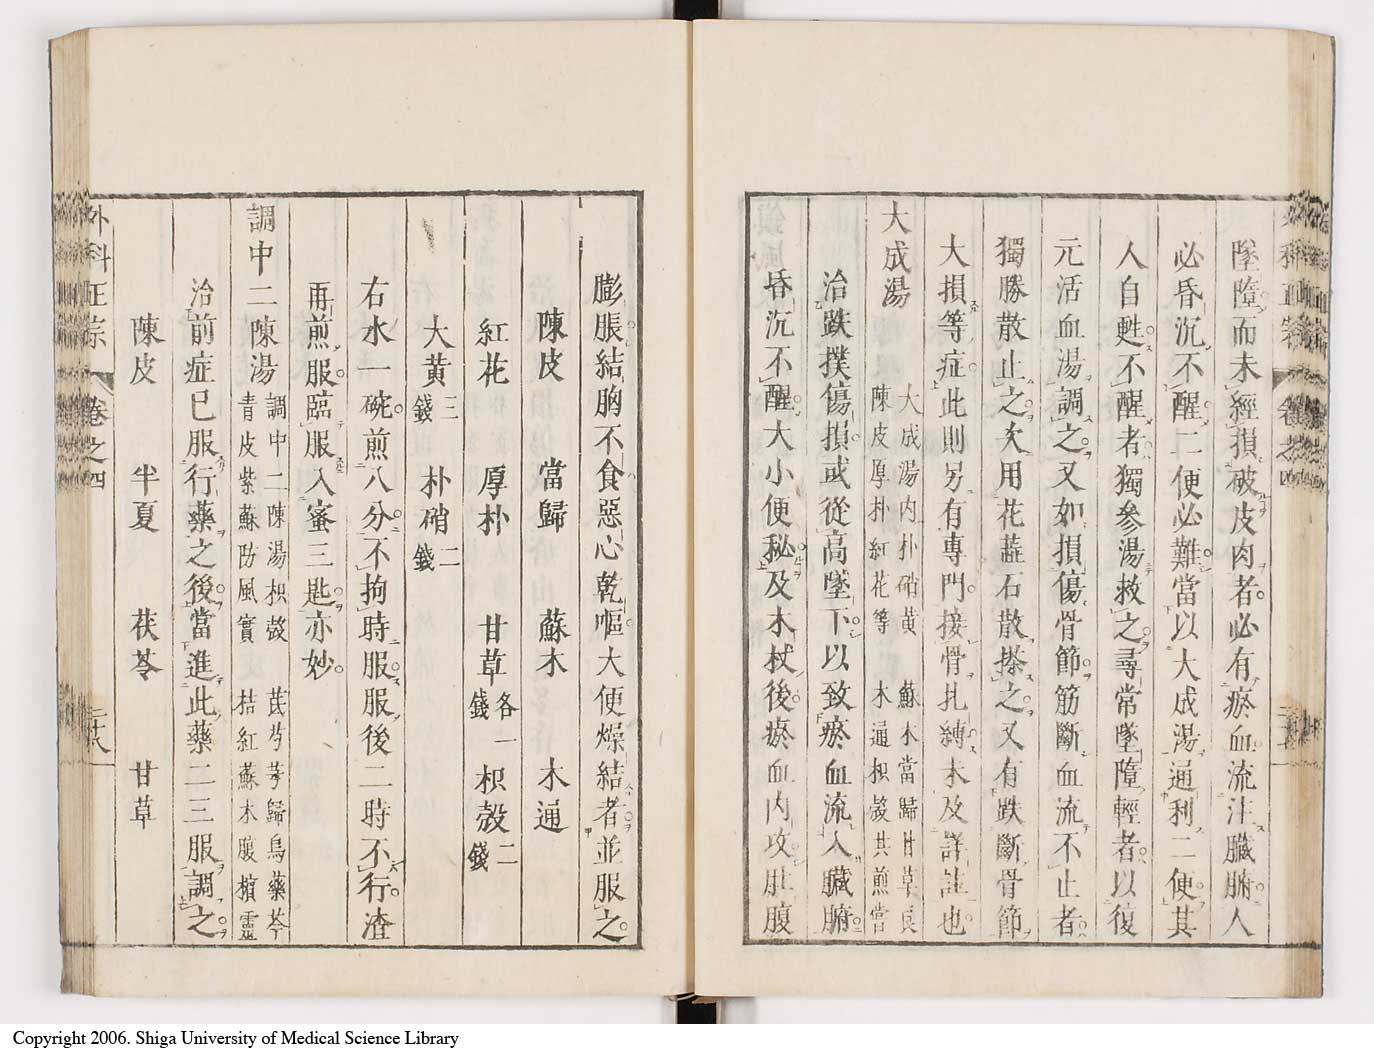 墜墮而未經損破皮肉者必有瘀血流注臟腑人
必昏沉不醒二便必難當以大成湯通利二便其
人自甦不醒者獨參湯救之尋常墜墮輕者以復
元活血湯調之又如損傷骨節筋斷血流不止者
獨勝散止之次用花蕋石散搽之又有跌斷骨節
大損等症此則另有專門接骨扎縛未及詳註也
大成湯 大成湯內朴硝黃 蘇木當歸甘草良
陳皮厚朴紅花等 木通枳殼共煎嘗
治跌撲傷損或從高墜下以致瘀血流入臟腑
昏沉不醒大小便秘及木杖後瘀血內攻肚腹
膨脹結胸不食惡心乾嘔大便燥結者並服之
陳皮 當歸 蘇木 木通
紅花 厚朴 甘草各一錢 枳殼二錢
大黃三錢 朴硝二錢
右水一碗煎八分不拘時服服後二時不行渣
再煎服臨服入蜜三匙亦妙
調中二陳湯 調中二陳湯枳殼 芪芍芎歸烏藥芩
青皮紫蘇防風實 桔紅蘇木腹檳靈
治前症已服行藥之後當進此藥二三服調之
陳皮 半夏 茯苓 甘草
外科正宗 卷之四 二十八
Copyright 2006. Shiga University of Medical Science Library